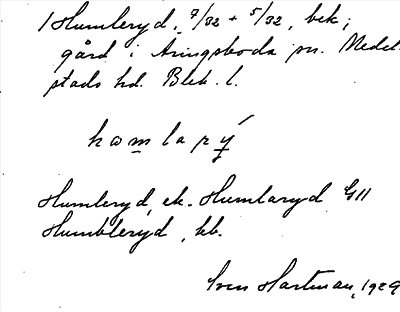 1 Humleryd, 7/32 + 5/32, bek;
gård i Aringsboda sn. Medel-
stads hd. Blek. l.
hamlarý
Humleryd, ek. Humlaryd GII
Humbleryd, kb.
Sven Hartman, 1929